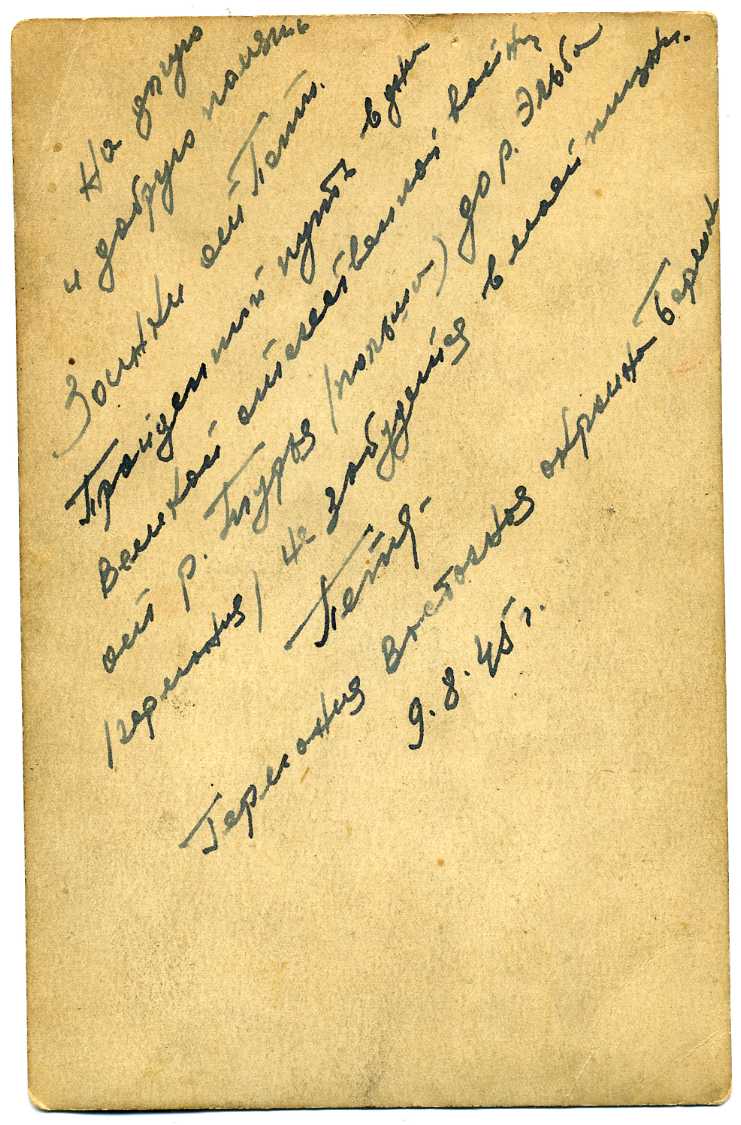 На долгую
и добрую память
Зоиньки от Пети.
Пройденный путь в дни
Великой отечественной войны
от р. Турья (польша) до р. Эльба
(германия) не забудется в моей жизни.
Петя.
Германия восточная окраина Берлина
9.8.45 г.